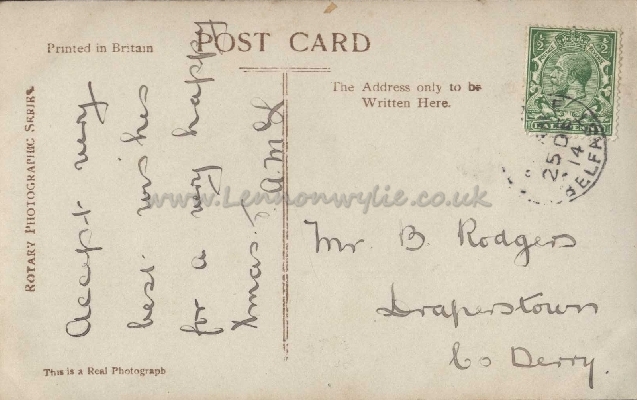 Printed in Britain
POST CARD
The Address only to be
Written Here.
ROTARY PHOTOGRAPHIC SERIES
Accept very
best wishes
for a very happy
Xmas.
A.M.G
This is a Real Photograph
½
½
25 DE
14
BELFAST
www.Lennonwylie.co.uk
Mr. B. Rodgers
Draperstown
Co Derry.